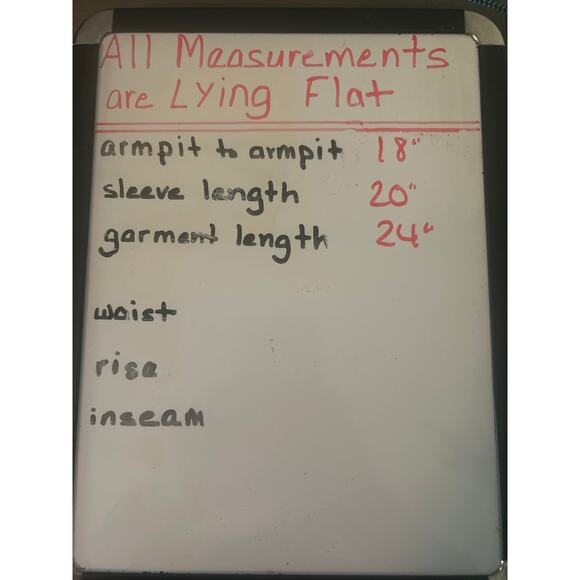 All Measurements
are Lying Flat
armpit to armpit 18"
sleeve length 20"
garment length 24"
waist
rise
inseam